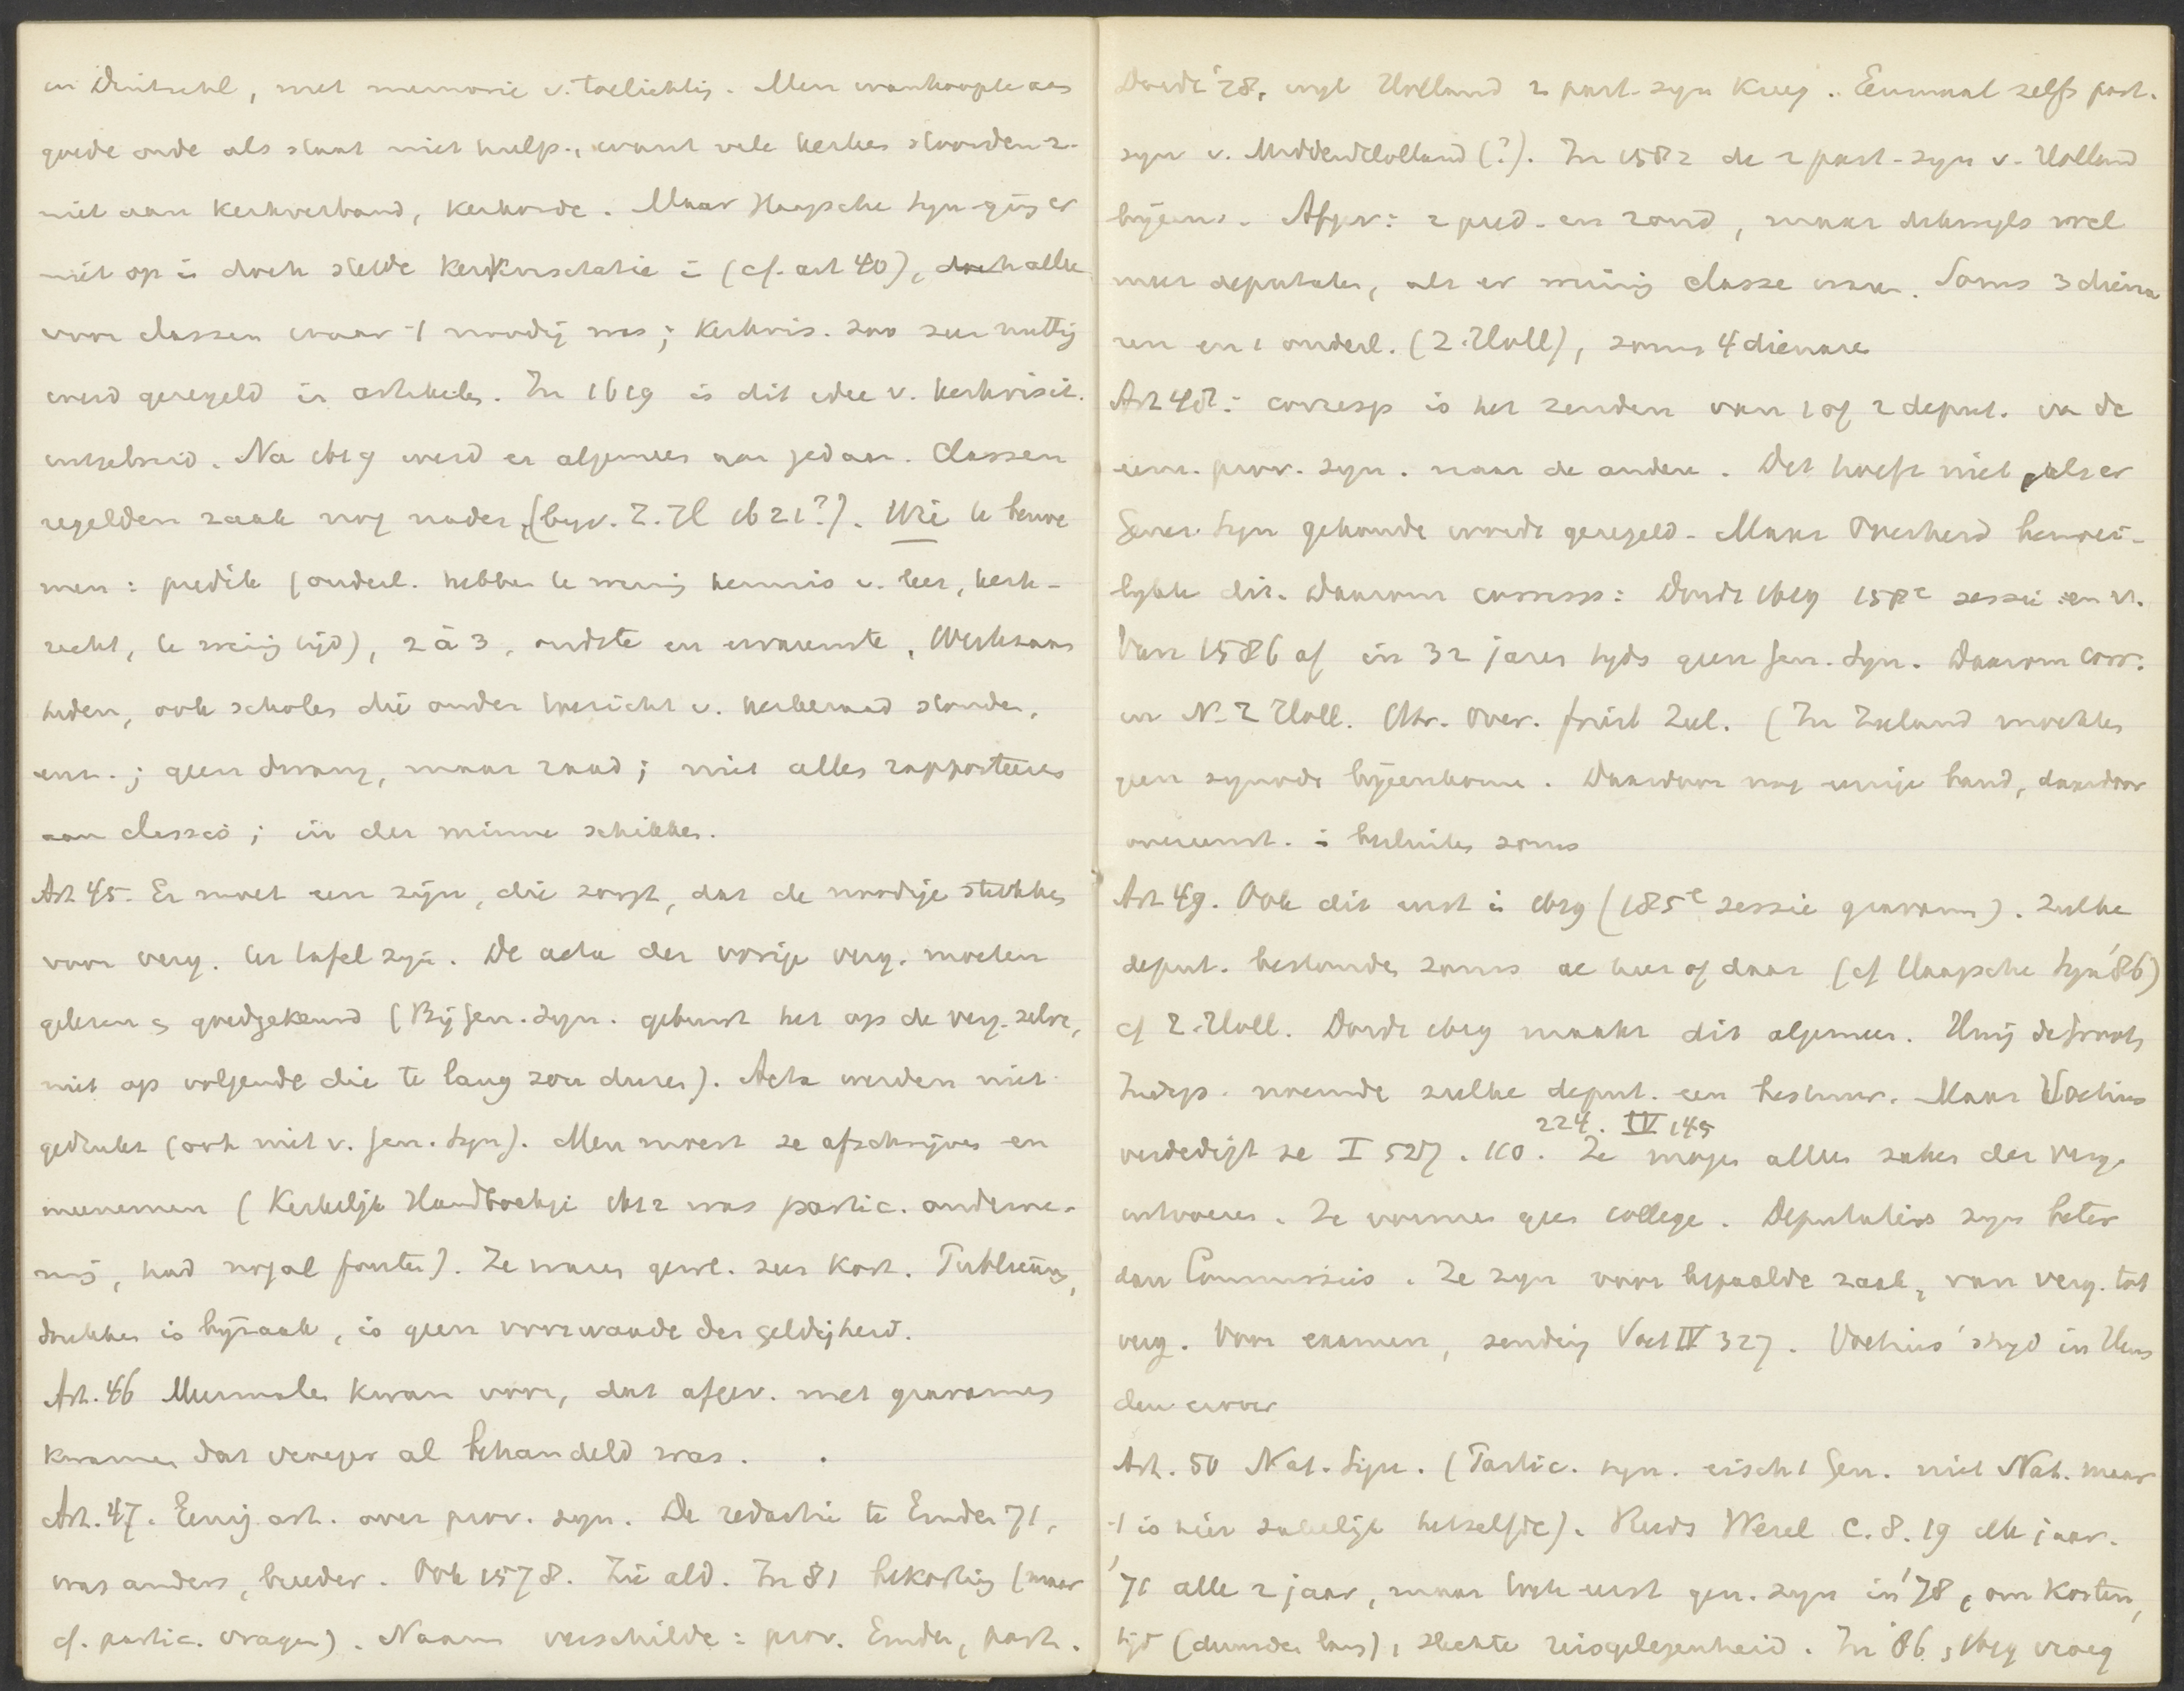 en Duitschl, met memorie v. toelichtig. Men wanhoopte aan
goede orde als staat niet hielp, want vele kerken stoorden z.
niet aan kerkverband, kerkorde. Maar Haagsche Syn ging er
niet op in doch stelde kerkvisitatie in (cf. art 40), doch alleen
voor classen waar 't noodig was; kerkvis. zoo zeer nuttig
werd geregeld in artikelen. In 1619 is dit idee v. kerkvisit.
uitgebreid. Na 1619 werd er algemeen aan gedaan. Classen
regelden zaak nog nader, (byv. Z.Hl 1621?). Wie te benoe
men: predik (onderl. hebben te weinig kennis v. leer, kerk-
recht, te weinig tijd), 2 à 3, oudste en ervarenste, Werkzaam
heden, ook scholen die onder toezicht v. kerkeraad stonden,
enz.; geen dwang, maar raad; niet alles rapporteeren
aan classis; in der minne schikken.
Art 45. Er moet een zijn, die zorgt, dat de noodige stukken
voor verg. ter tafel zijn. De acta der vorige verg. moeten
gelezen en goedgekeurd (Bij Gen. Syn. gebeurt het op de verg. zelve,
niet op volgende die te lang zou duren). Acta werden niet
gedrukt (ook niet v. Gen. Syn). Men moest ze afschrijven en
meenemen (Kerkelijk Handboekje 1612 was partic. onderne-
ming, had nogal fouten). Ze waren gewl. zeer kort. Publiceering,
drukken is bijzaak, is geen voorwaarde der geldigheid.
Art. 46 Meermalen kwam voor, dat afgev. met gravamen
kwamen dat vroeger al behandeld was.
Art. 47. Eenig art. over prov. syn. De redactie te Emden 71,
was anders, breeder. Ook 1578. Zie ald. In 81 bekorting (maar
cf. partic. vragen). Naam verschilde: prov. Emden, part.
Dordt '78, wyl Holland 2 part-syn kreeg. Eenmaal zelfs part.
syn v. MiddenHolland (?). In 1582 de 2 part-syn v. Holland
bijeens. Afgev: 2 pred. en 2 oud, maar dikwyls wel
meer deputaten, als er weinig classe waren. Soms 3 diena
ren en 1 onderl. (Z.Holl), soms 4 dienaren
Art 48: corresp is het zenden van 1 of 2 deput. van de
eene prov. syn. naar de andere. Dit hoeft niet, als er
Gener. Syn gehouden worde geregeld. Maar Overheid bemoei-
lykte dit. Daarom corresp: Dordt 1619 158e sessie en v.
Van 1586 af in 32 jaren tyds geen Gen. Syn. Daarom corr.
in N. Z Holl. Utr. Over. friesl Zeel. (In Zeeland mochten
geen synode bijeenkomen. Daardoor nog eenige band, daardoor
overeenst. in besluiten soms
Art 49. Ook dit eerst in 1619 (185e sessie gravam). Zulke
deput. bestonden soms al hier of daar (cf Haagsche Syn '86)
cf Z.Holl. Dordt 1619 maakt dit algemeen. Hug de Groot,
Indep. noemde zulke deput. een bestuur. Maar Voetius
224. IV 145
verdedigt ze I 527. 110. Ze mogen alleen zaken der verg.
uitvoeren. Ze vormen geen college. Deputaties zyn beter
dan Commissies. Ze zyn voor bepaalde zaak, van verg. tot
verg. Voor examen, zending Voet IV 327. Voetius' stryd in Heus
den erover
Art. 50 Nat. Syn. (Partic. syn. eischt Gen. niet Nat. maar
't is hier zakelijk hetzelfde). Reeds Wesel C. 8. 19 elk jaar.
'71 alle 2 jaar, maar toch eerst gen. syn in '78, om kosten,
tijd (duurden lang), slechte reisgelegenheid. In '86, 1619 vroeg